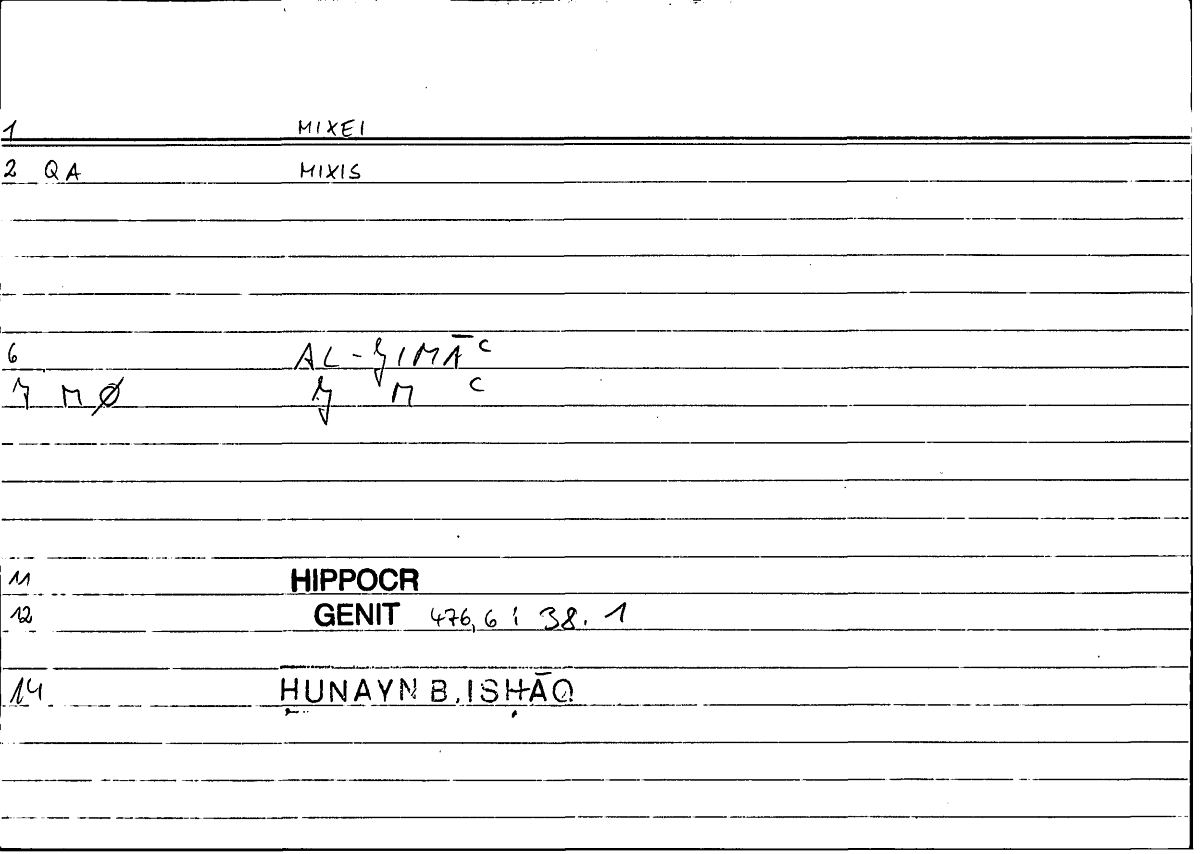 1 MIXEI
2 QA MIXIS
6 AL-ǦIMĀʿ
7 M Ø Ǧ M ʿ
11 HIPPOCR
12 GENIT 476,6 ; 38.1
14 ḤUNAYN B. ISḤĀQ